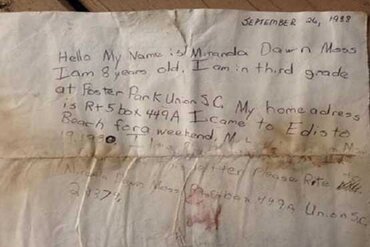 SEPTEMBER 26, 1988
Hello My Name is Miranda Dawn Moss
I am 8 years old. I am in third grade
at Foster Park Union S.C. My home adress
is Rt 5 box 449A I came to Edisto
Beach for a weekend,
Please Rite
Miranda Dawn Moss box 449A Union S.C.
29379